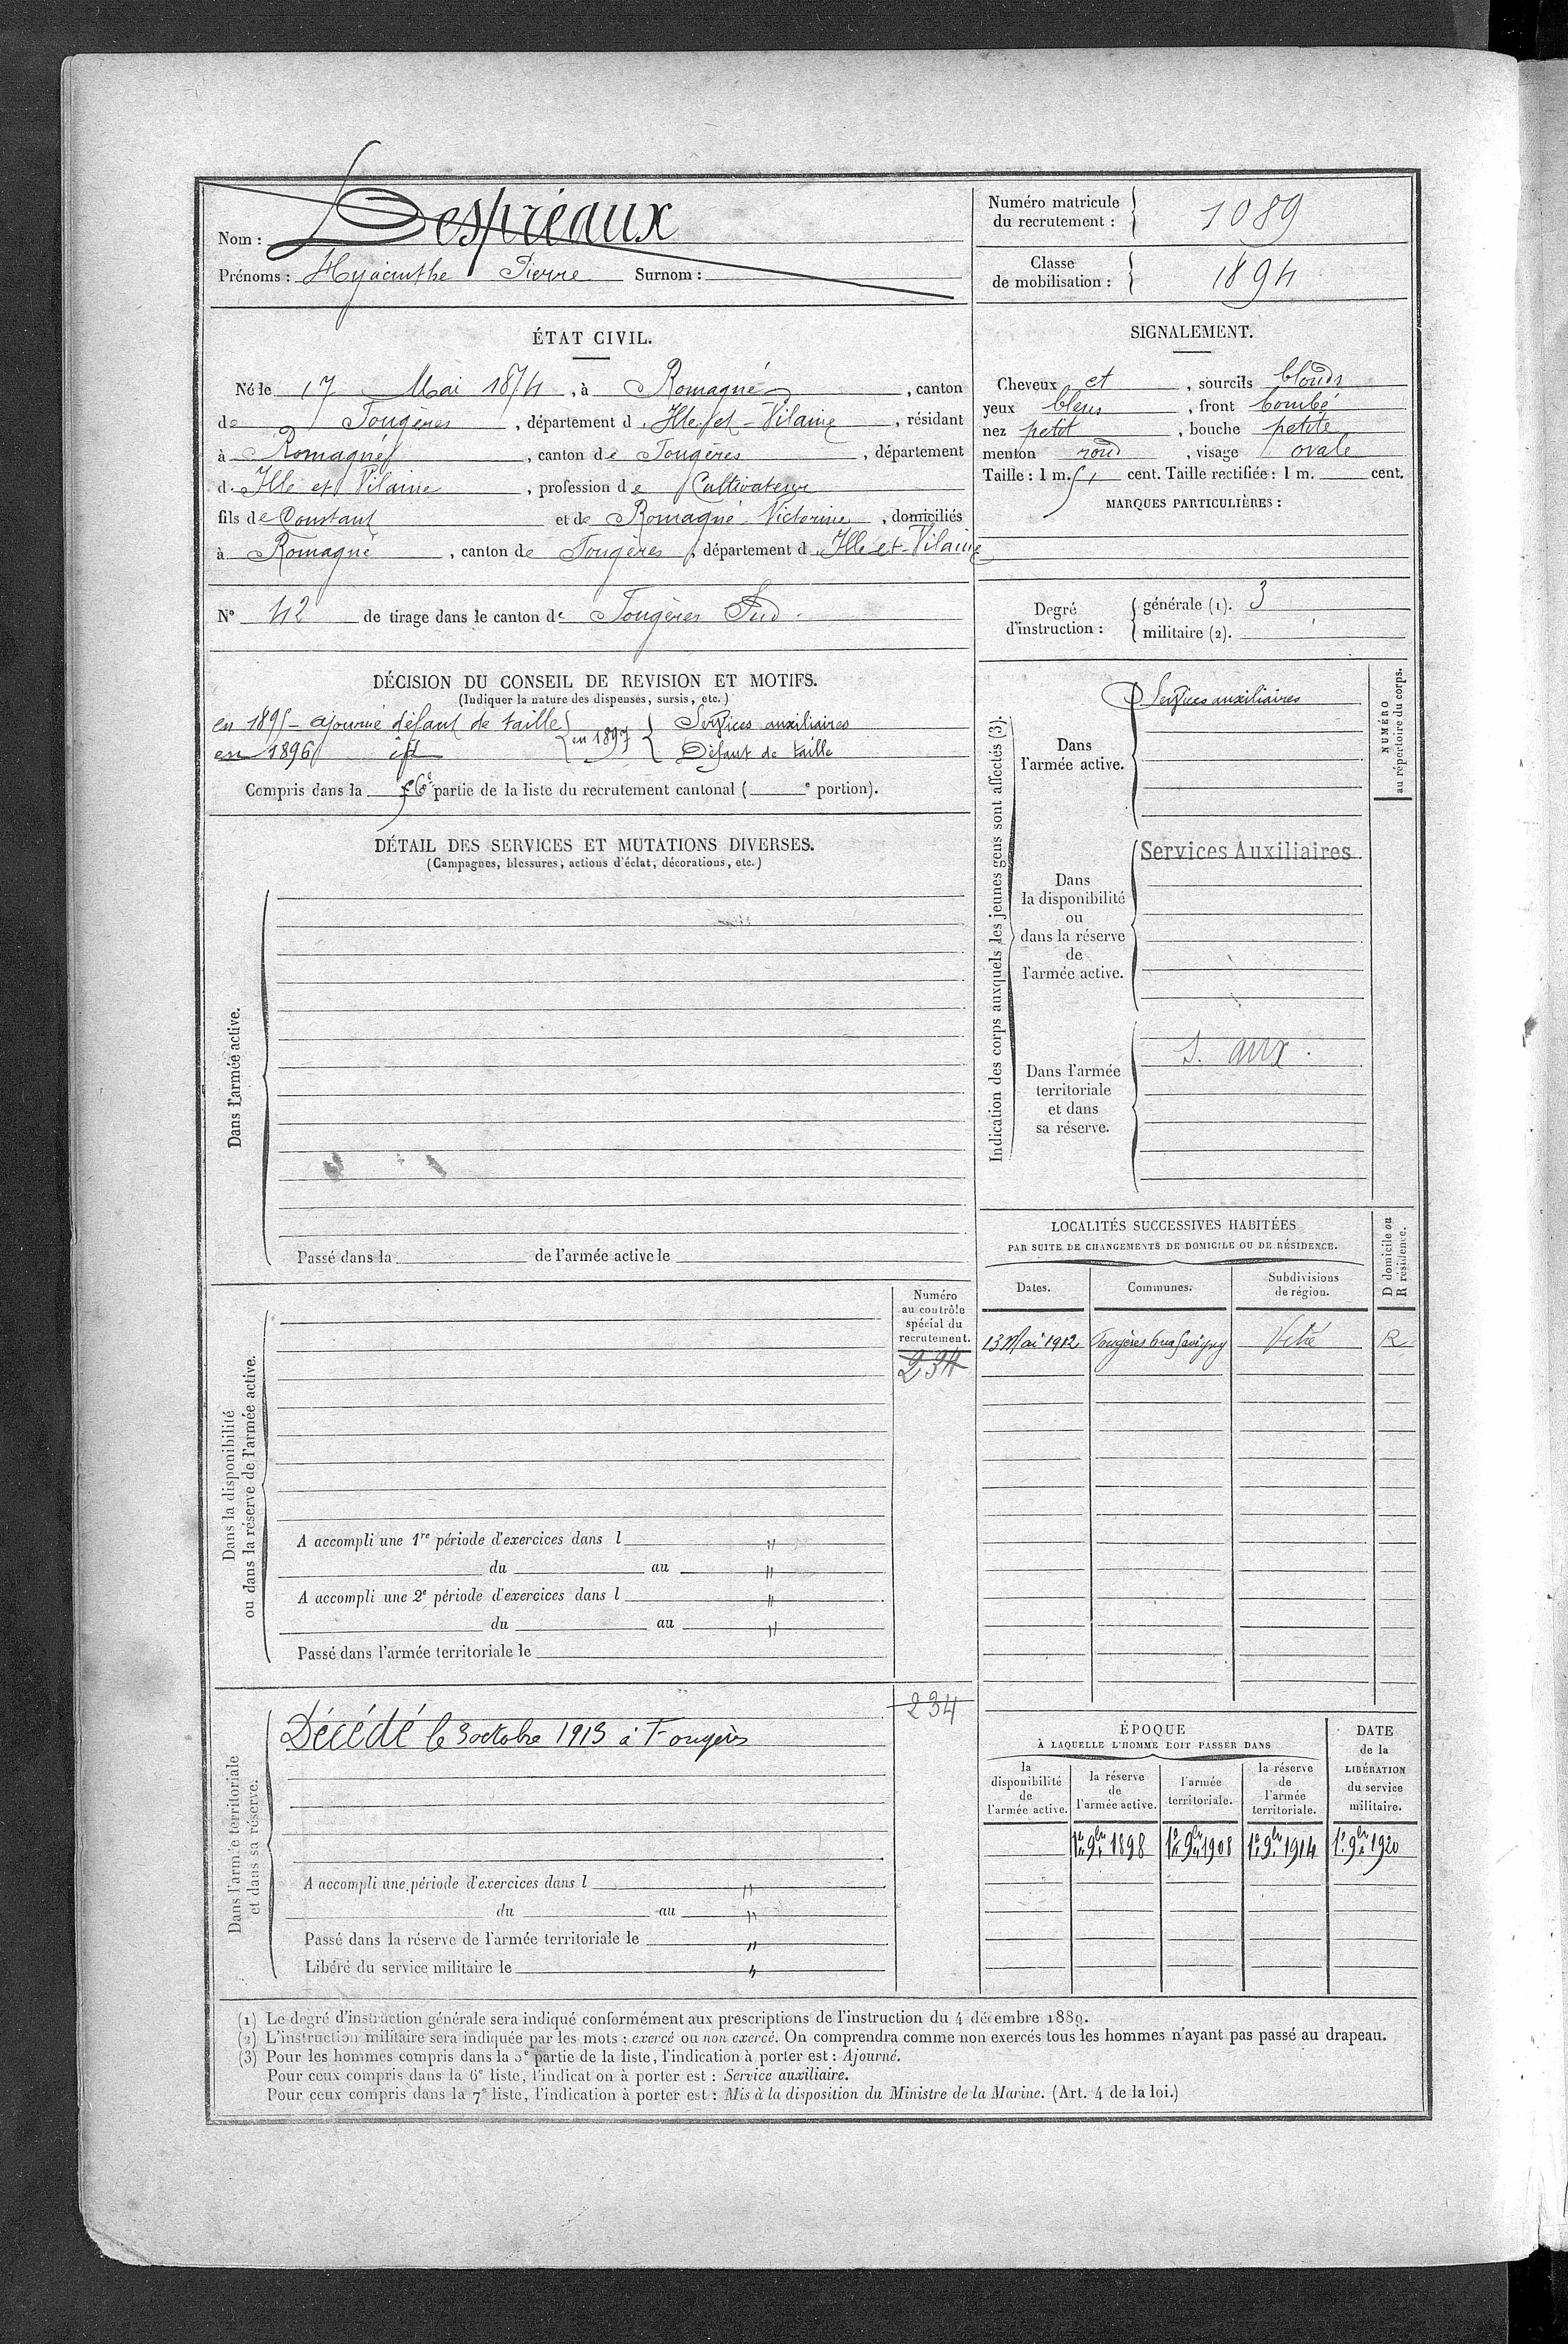 Nom : Despréaux
Prénoms : Hyacinthe Pierre Surnom :
Numéro matricule du recrutement : 1089
Classe de mobilisation : 1894
ÉTAT CIVIL.
Né le 17 Mai 1874, à Romagné, canton
de Fougères, département d Ille-et-Vilaine, résidant
à Romagné, canton de Fougères, département
d Ille et Vilaine, profession de Cultivateur
fils de Constant et de Romagné Victorine, domiciliés
à Romagné, canton de Fougères, département d Ille-et-Vilaine
N° 42 de tirage dans le canton de Fougères Sud.
SIGNALEMENT.
Cheveux et, sourcils blonds
yeux bleus, front bombé
nez petit, bouche petite
menton rond, visage ovale
Taille : 1 m. 51 cent. Taille rectifiée : 1 m. cent.
MARQUES PARTICULIÈRES :
Degré d'instruction :
générale (1). 3
militaire (2).
DÉCISION DU CONSEIL DE REVISION ET MOTIFS.
(Indiquer la nature des dispenses, sursis, etc.)
en 1895 - ajourné défaut de taille
en 1896 id
en 1897 Services auxiliaires
Défaut de taille
Compris dans la 6e partie de la liste du recrutement cantonal ( e portion).
DÉTAIL DES SERVICES ET MUTATIONS DIVERSES.
(Campagnes, blessures, actions d'éclat, décorations, etc.)
Dans l'armée active.
Passé dans la de l'armée active le
Indication des corps auxquels les jeunes gens sont affectés (3).
NUMÉRO
au répertoire du corps.
Dans
l'armée active.
Services auxiliaires
Dans
la disponibilité
ou
dans la réserve
de
l'armée active.
Services Auxiliaires
Dans l'armée
territoriale
et dans
sa réserve.
S. aux.
LOCALITÉS SUCCESSIVES HABITÉES
PAR SUITE DE CHANGEMENTS DE DOMICILE OU DE RÉSIDENCE.
Dates. Communes. Subdivisions de région. D domicile ou R résidence.
13 Mai 1912 Fougères Savigny Vitré R
Dans la disponibilité
ou dans la réserve de l'armée active.
Numéro
au contrôle
spécial du
recrutement.
234
A accompli une 1re période d'exercices dans l "
du au "
A accompli une 2e période d'exercices dans l "
du au "
Passé dans l'armée territoriale le
Dans l'armée territoriale
et dans sa réserve.
234
Décédé le 3 octobre 1913 à Fougères
A accompli une période d'exercices dans l "
du au "
Passé dans la réserve de l'armée territoriale le "
Libéré du service militaire le "
ÉPOQUE
À LAQUELLE L'HOMME DOIT PASSER DANS
la disponibilité de l'armée active.
la réserve de l'armée active.
l'armée territoriale.
la réserve de l'armée territoriale.
DATE de la LIBÉRATION du service militaire.
1er 9bre 1898 1er 9bre 1908 1er 9bre 1914 1er 9bre 1920
(1) Le degré d'instruction générale sera indiqué conformément aux prescriptions de l'instruction du 4 décembre 1889.
(2) L'instruction militaire sera indiquée par les mots : exercé ou non exercé. On comprendra comme non exercés tous les hommes n'ayant pas passé au drapeau.
(3) Pour les hommes compris dans la 5e partie de la liste, l'indication à porter est : Ajourné.
Pour ceux compris dans la 6e liste, l'indication à porter est : Service auxiliaire.
Pour ceux compris dans la 7e liste, l'indication à porter est : Mis à la disposition du Ministre de la Marine. (Art. 4 de la loi.)